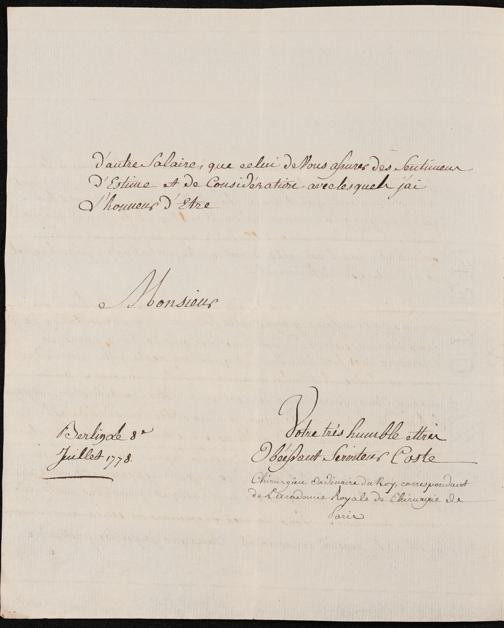 d'autre Salaire, que celui de Vous assurer des Sentimens
d'Estime et de Considération avec lesquels j'ai
l'honneur d'Etre
Monsieur
Votre très humble et très
Obéissant Serviteur Coste
Chirurgien Ordinaire du Roy, correspondant
de L'académie Royale de Chirurgie de
Paris
Berlin le 8e
Juillet 1778.